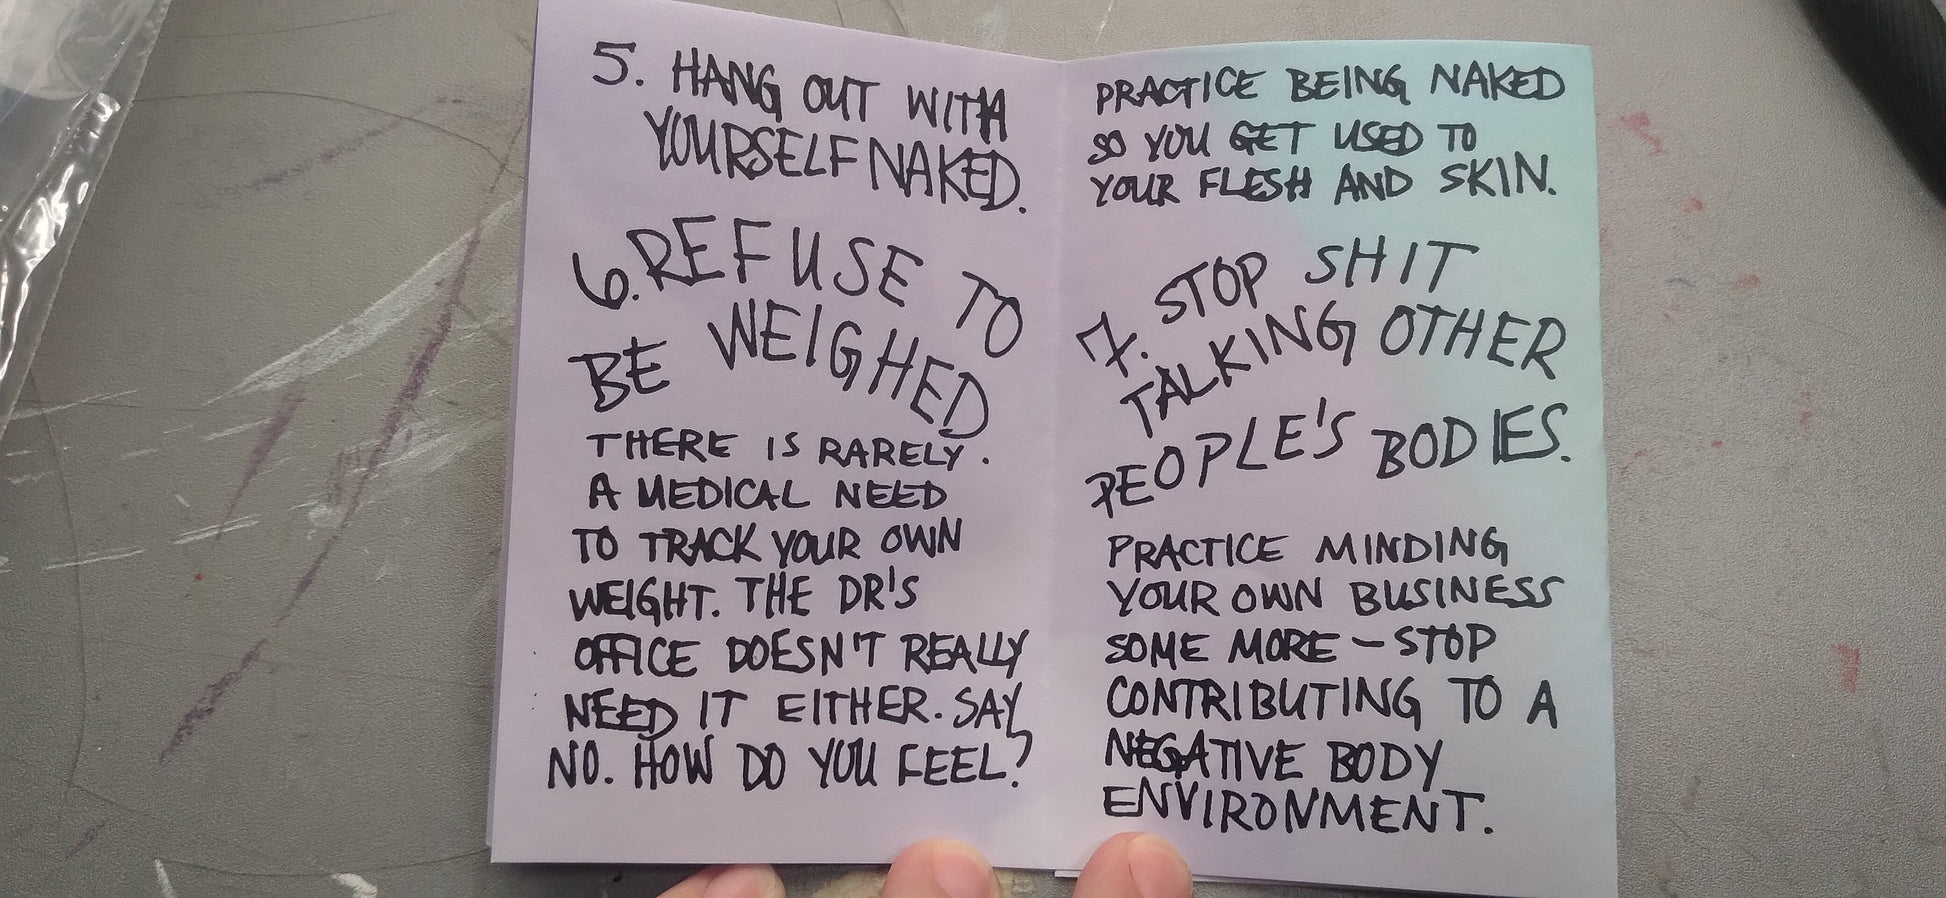 5. HANG OUT WITH
YOURSELF NAKED.
6. REFUSE TO
BE WEIGHED
THERE IS RARELY.
A MEDICAL NEED
TO TRACK YOUR OWN
WEIGHT. THE DR'S
OFFICE DOESN'T REALLY
NEED IT EITHER. SAY
NO. HOW DO YOU FEEL?
PRACTICE BEING NAKED
SO YOU GET USED TO
YOUR FLESH AND SKIN.
7. STOP SHIT
TALKING OTHER
PEOPLE'S BODIES.
PRACTICE MINDING
YOUR OWN BUSINESS
SOME MORE - STOP
CONTRIBUTING TO A
NEGATIVE BODY
ENVIRONMENT.